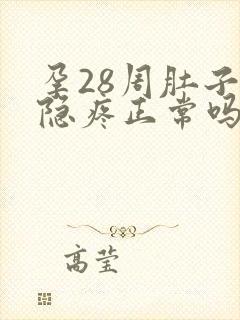 孕28周肚子
隐疼正常吗
高莹